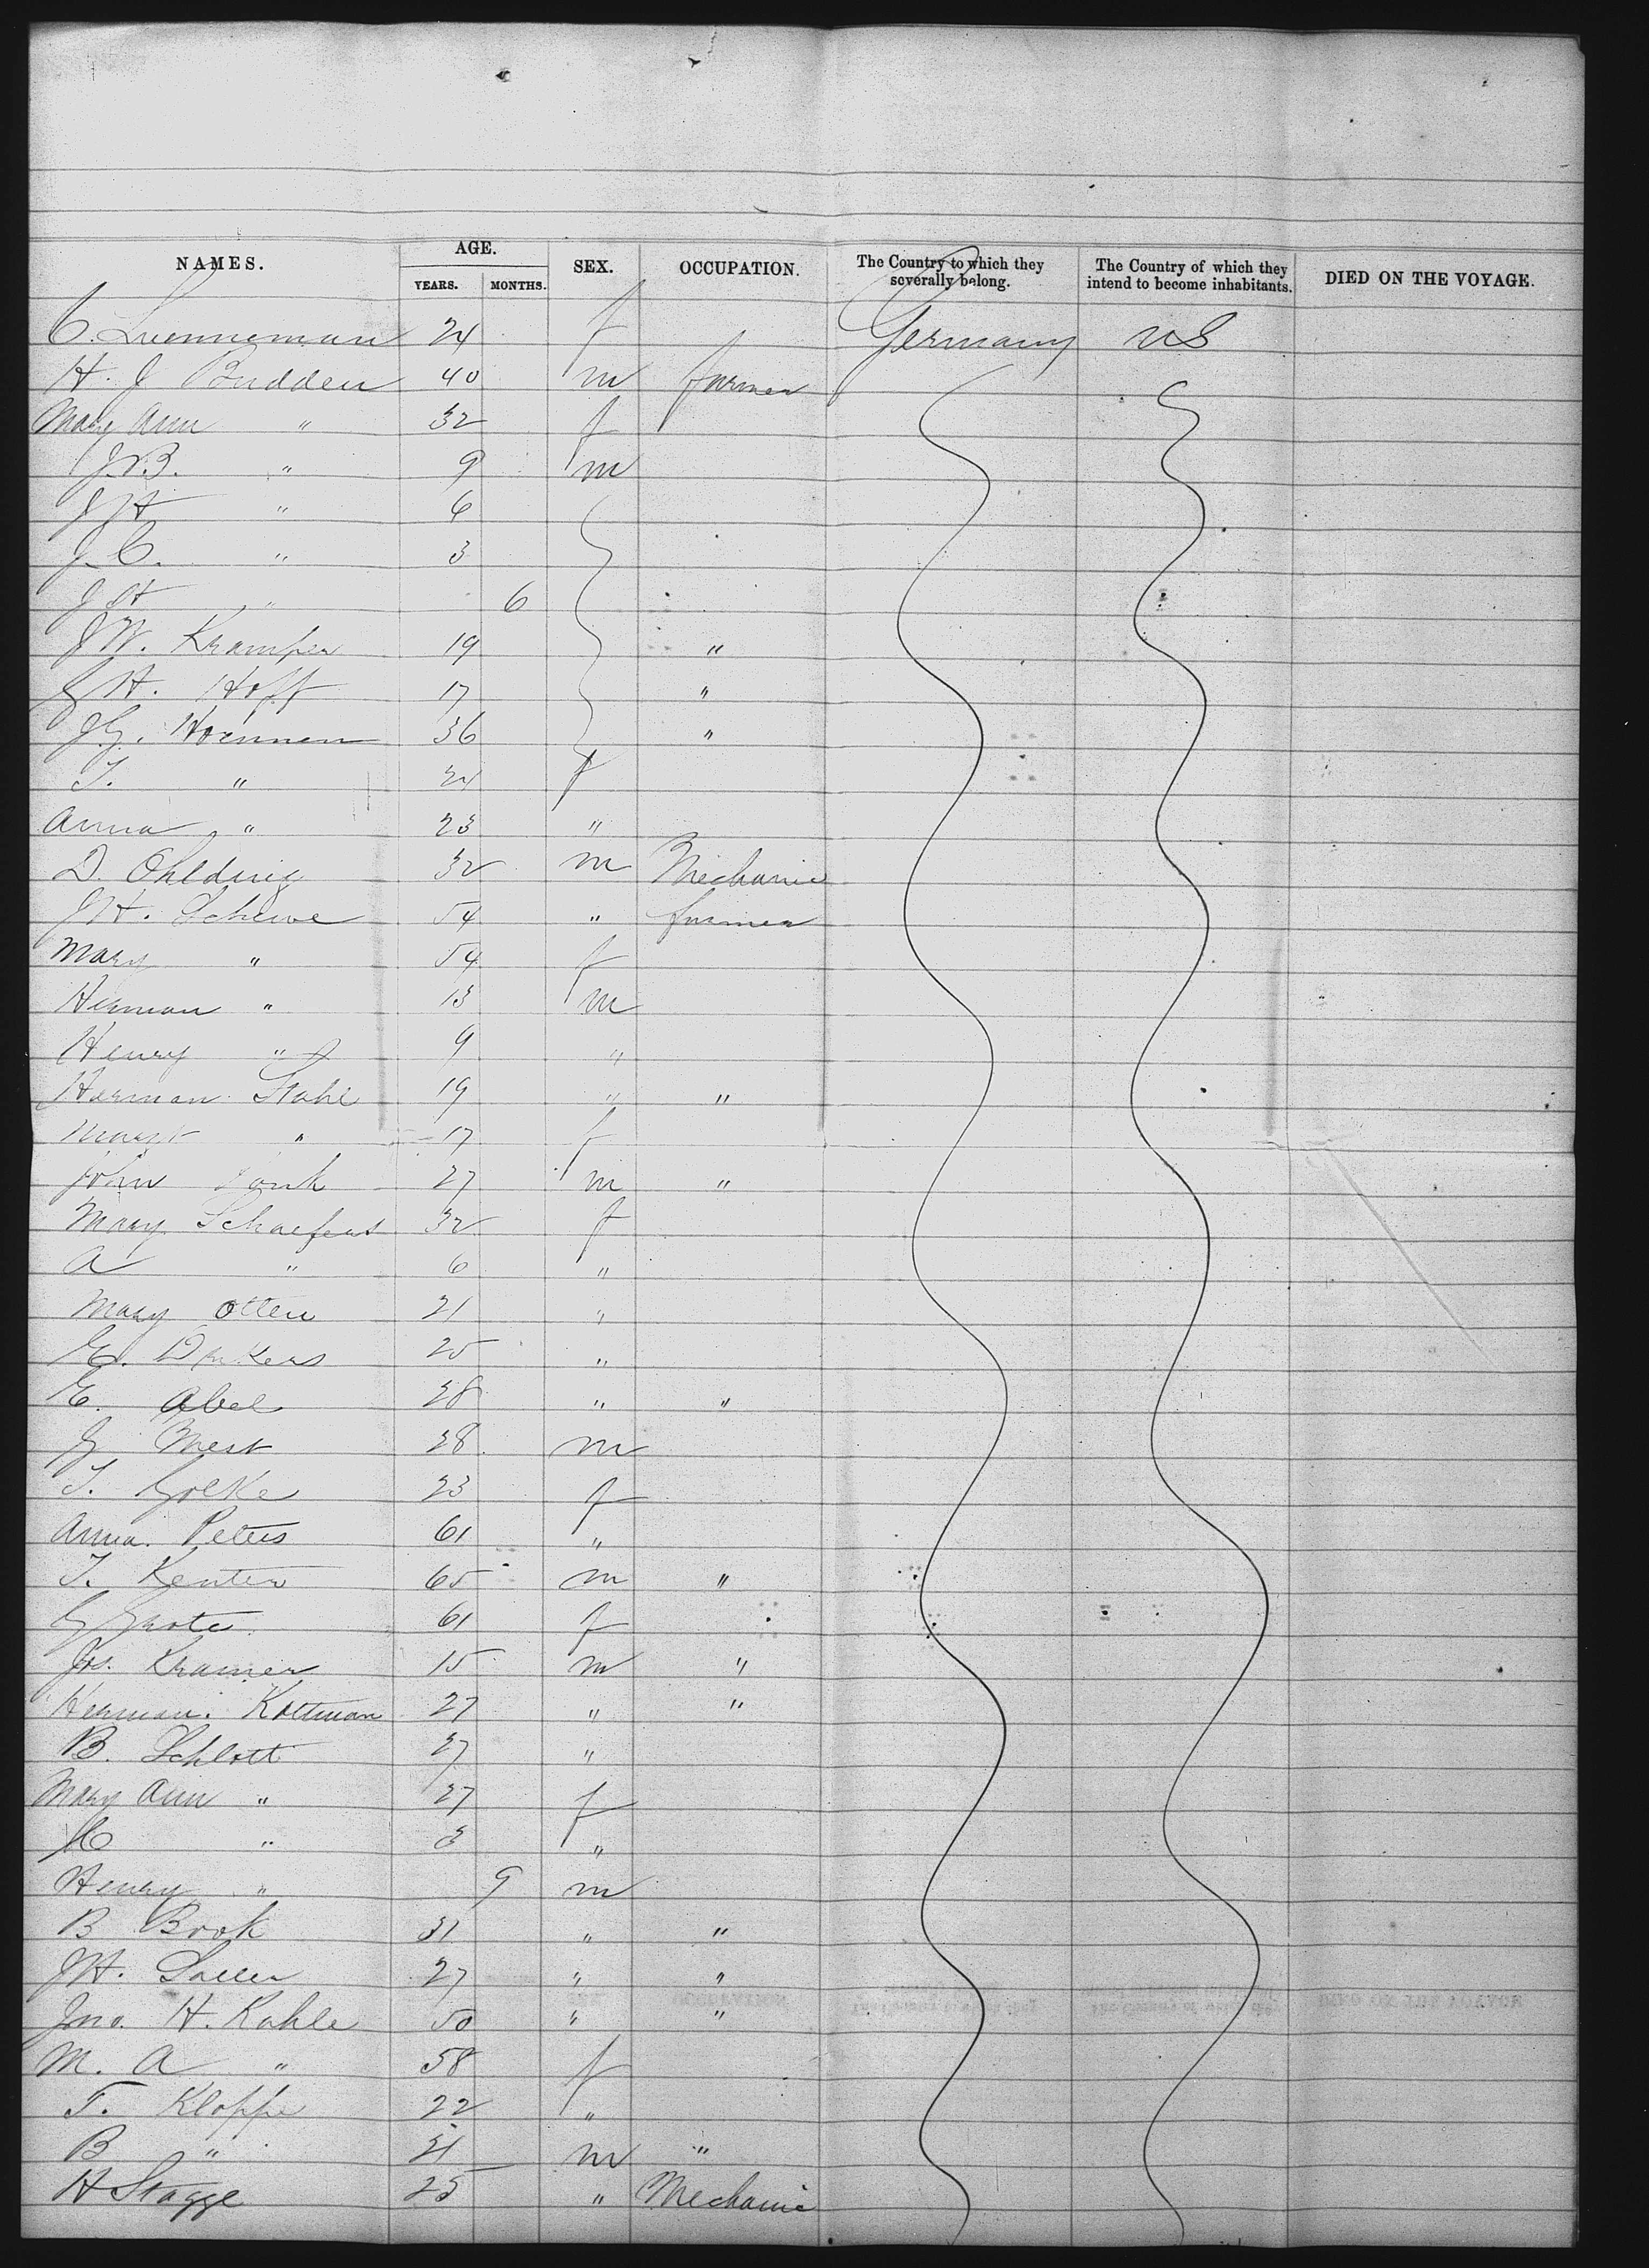 NAMES. AGE. SEX. OCCUPATION. The Country to which they severally belong. The Country of which they intend to become inhabitants. DIED ON THE VOYAGE.
YEARS. MONTHS.
C. Luenneman 24 f Germany US
H. J Budden 40 m farmer
Mary Ann " 32 f
J.B. " 9 m
J H " 6
J. C. " 3
J H " 6
J W. Kramper 19 "
G H. Hoff 17 "
J.G. 36 "
T. " 24 f
Anna " 23 "
D. Ohlding 32 m Mechanic
J H. Schewe 54 " farmer
Mary " 54 f
Herman " 13 m
Henry " 9 "
Herman Stahl 19 " "
" 17 f
John 27 m "
Mary Schaefers 32 f
A " 6 "
Mary Otten 21 "
E. 25 "
E. Abel 28 " "
G 28 m
T. 23 f
Anna Peters 61 "
T. Kenter 65 m "
G Grote 61 f
Jos. Kramer 15 m "
Herman. Kottman 27 " "
B. Schlott 27 "
Mary Ann " 27 f
" 3 "
Henry " 9 m
B Brok 31 " "
J H. 27 " "
Jno. H. Kahle 50 " "
M. A " 58 f
T. Kloppe 22 "
B " 21 m "
H Stagge 25 " Mechanic